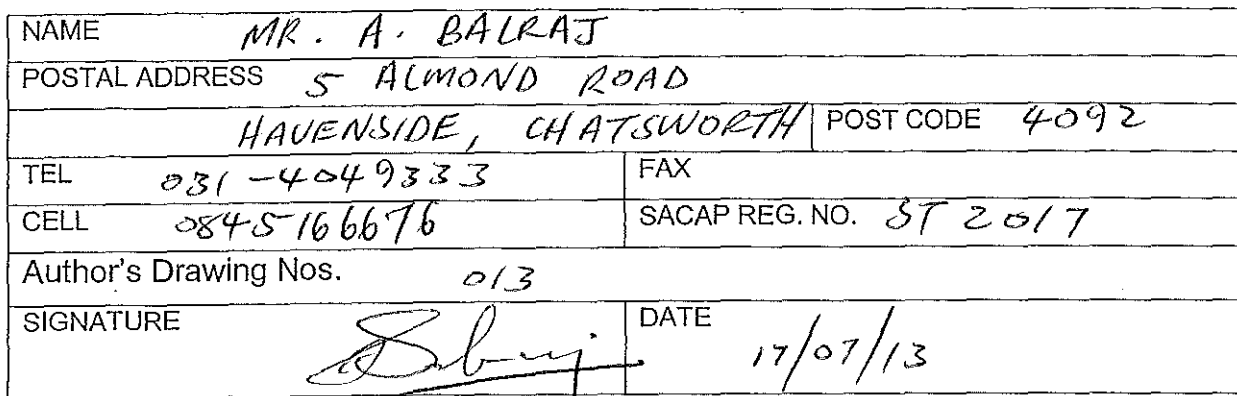 NAME MR. A. BALRAJ
POSTAL ADDRESS 5 ALMOND ROAD
HAVENSIDE, CHATSWORTH POST CODE 4092
TEL 031-4049333 FAX
CELL 0845166676 SACAP REG. NO. ST 2017
Author's Drawing Nos. 013
SIGNATURE DATE 17/07/13